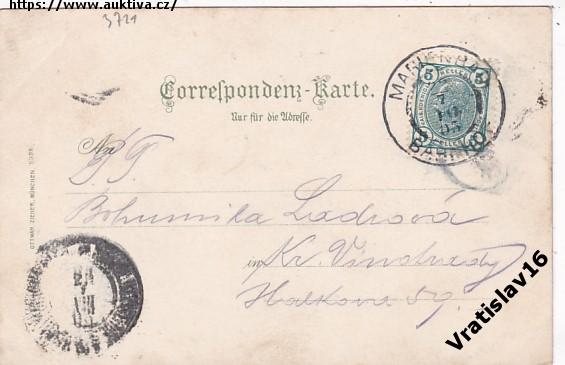 https://www.auktiva.cz/
3721
Correspondenz-Karte.
Nur für die Adresse.
MARIENBAD
BAHNHOF
5 HELLER 5
An
P. T.
Bohumila Ladrová
in Kr. Vinohrady
Halkova 59.
OTTMAR ZIEHER, MÜNCHEN.
Vratislav16